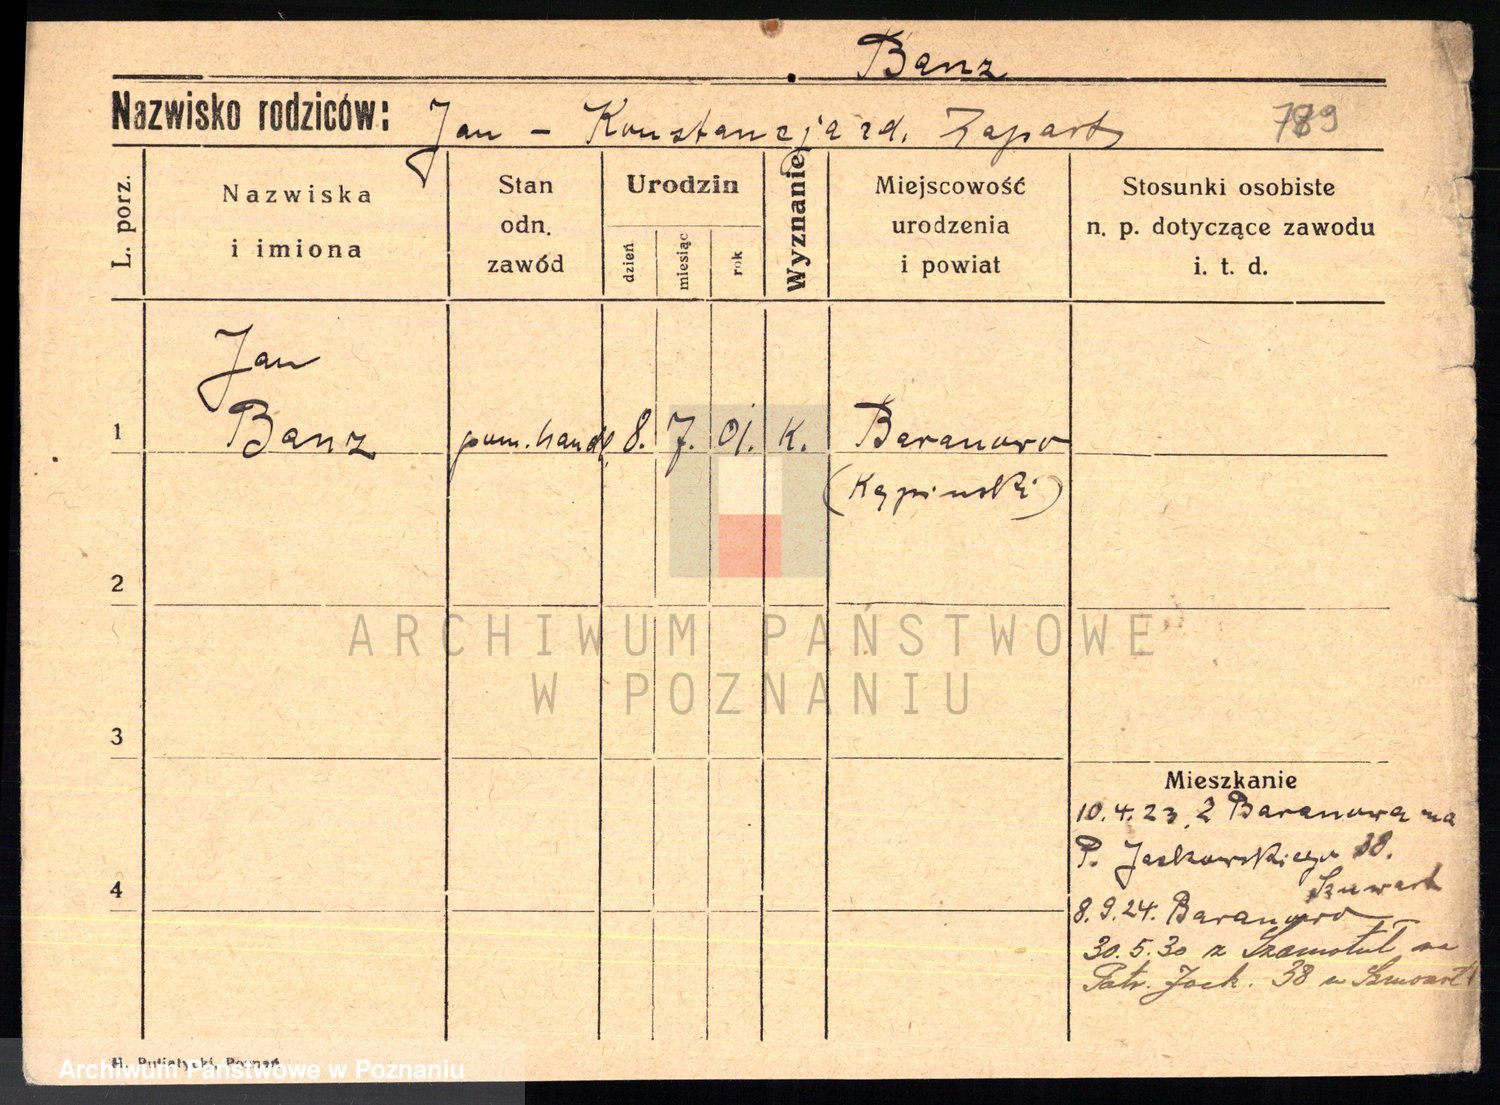 Banz
Nazwisko rodziców: Jan – Konstancja zd. Zapart 789
L. porz.
Nazwiska
i imiona
Stan
odn.
zawód
Urodzin
dzień
miesiąc
rok
Wyznanie
Miejscowość
urodzenia
i powiat
Stosunki osobiste
n. p. dotyczące zawodu
i. t. d.
Jan
1 Banz pom. handl. 8. 7. 01. K. Baranowo
(Kępiński)
2
ARCHIWUM PAŃSTWOWE
W POZNANIU
3
Mieszkanie
10.4.23. z Baranowa na
P. Jackowskiego 38.
8.9.24. Baranowo
4
30.5.30 z Szamotuł na
Patr. Jack. 38 u
H. Putiatycki, Poznań
Archiwum Państwowe w Poznaniu